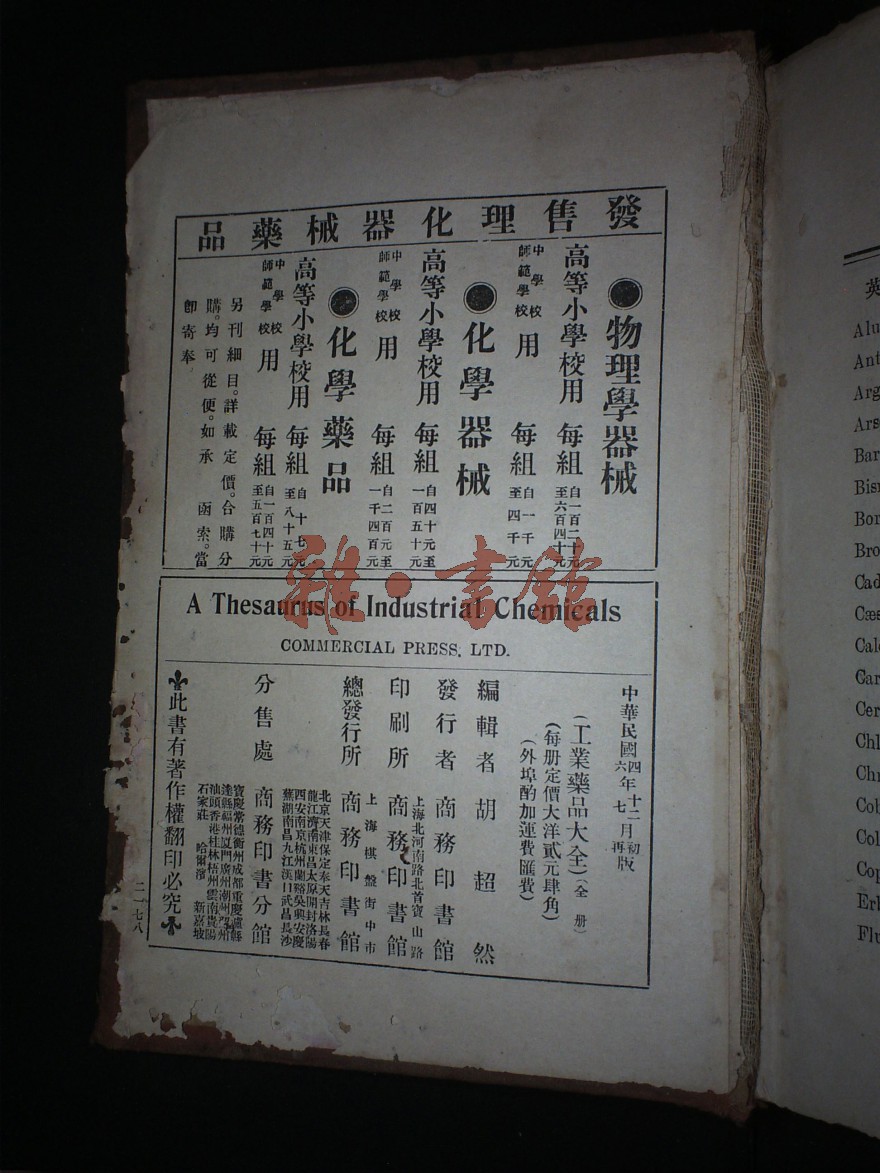 發售理化器械藥品
●物理學器械
高等小學校用 每組 自一百二十元至六百四十元
中學校師範學校用 每組 自一千元至四千元
●化學器械
高等小學校用 每組 自四十元至一百五十元
中學校師範學校用 每組 自二百元至一千四百元
●化學藥品
高等小學校用 每組 自十七元至八十五元
中學校師範學校用 每組 自一百四十元至五百七十元
另刊細目。詳載定價。合購分
購。均可從便。如承 函索。當
卽寄奉
A Thesaurus of Industrial Chemicals
COMMERCIAL PRESS, LTD.
中華民國四年十二月初版
六年七月再版
(工業藥品大全)(全册)
(每册定價大洋貳元肆角)
(外埠酌加運費匯費)
編輯者 胡超然
發行者 商務印書館
上海北河南路北首寶山路
印刷所 商務印書館
上海棋盤街中市
總發行所 商務印書館
北京天津保定奉天吉林長春
龍江濟南東昌太原開封洛陽
西安南京杭州蘭谿吳興安慶
蕪湖南昌九江漢口武昌長沙
分售處 商務印書分館
寶慶常德衡州成都重慶瀘縣
達縣福州廈門廣州潮州
汕頭香港桂林梧州雲南貴陽
石家莊 哈爾濱 新嘉坡
此書有著作權翻印必究
二一七八
雜·書館
英
Alu
Ant
Arg
Ars
Bar
Bis
Bor
Bro
Cad
Cæs
Calc
Car
Cer
Chl
Chr
Cob
Col
Cop
Erb
Flu